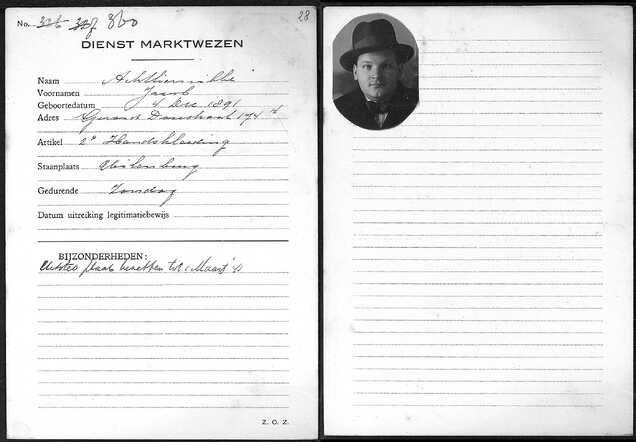 No. 326 327 360
28
DIENST MARKTWEZEN
Naam
Voornamen Jacob
Geboortedatum 4 Dec. 1891
Adres Gerard Doustraat 174
Artikel 2e Handskleeding
Staanplaats Uilenburg
Gedurende Zondag
Datum uitreiking legitimatiebewijs
BIJZONDERHEDEN:
plaats bezetten tot 1 Maart
Z. O. Z.